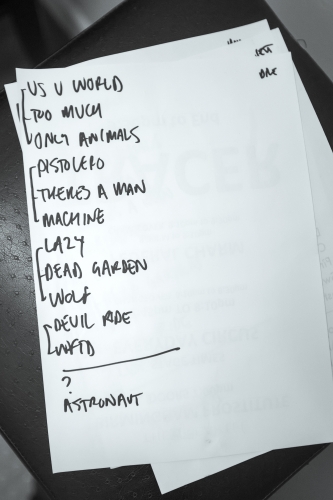 US U WORLD
TOO MUCH
ONLY ANIMALS
PISTOLERO
THERES A MAN
MACHINE
LAZY
DEAD GARDEN
WOLF
DEVIL RIDE
WFTD
?
ASTRONAUT
SET
ONE